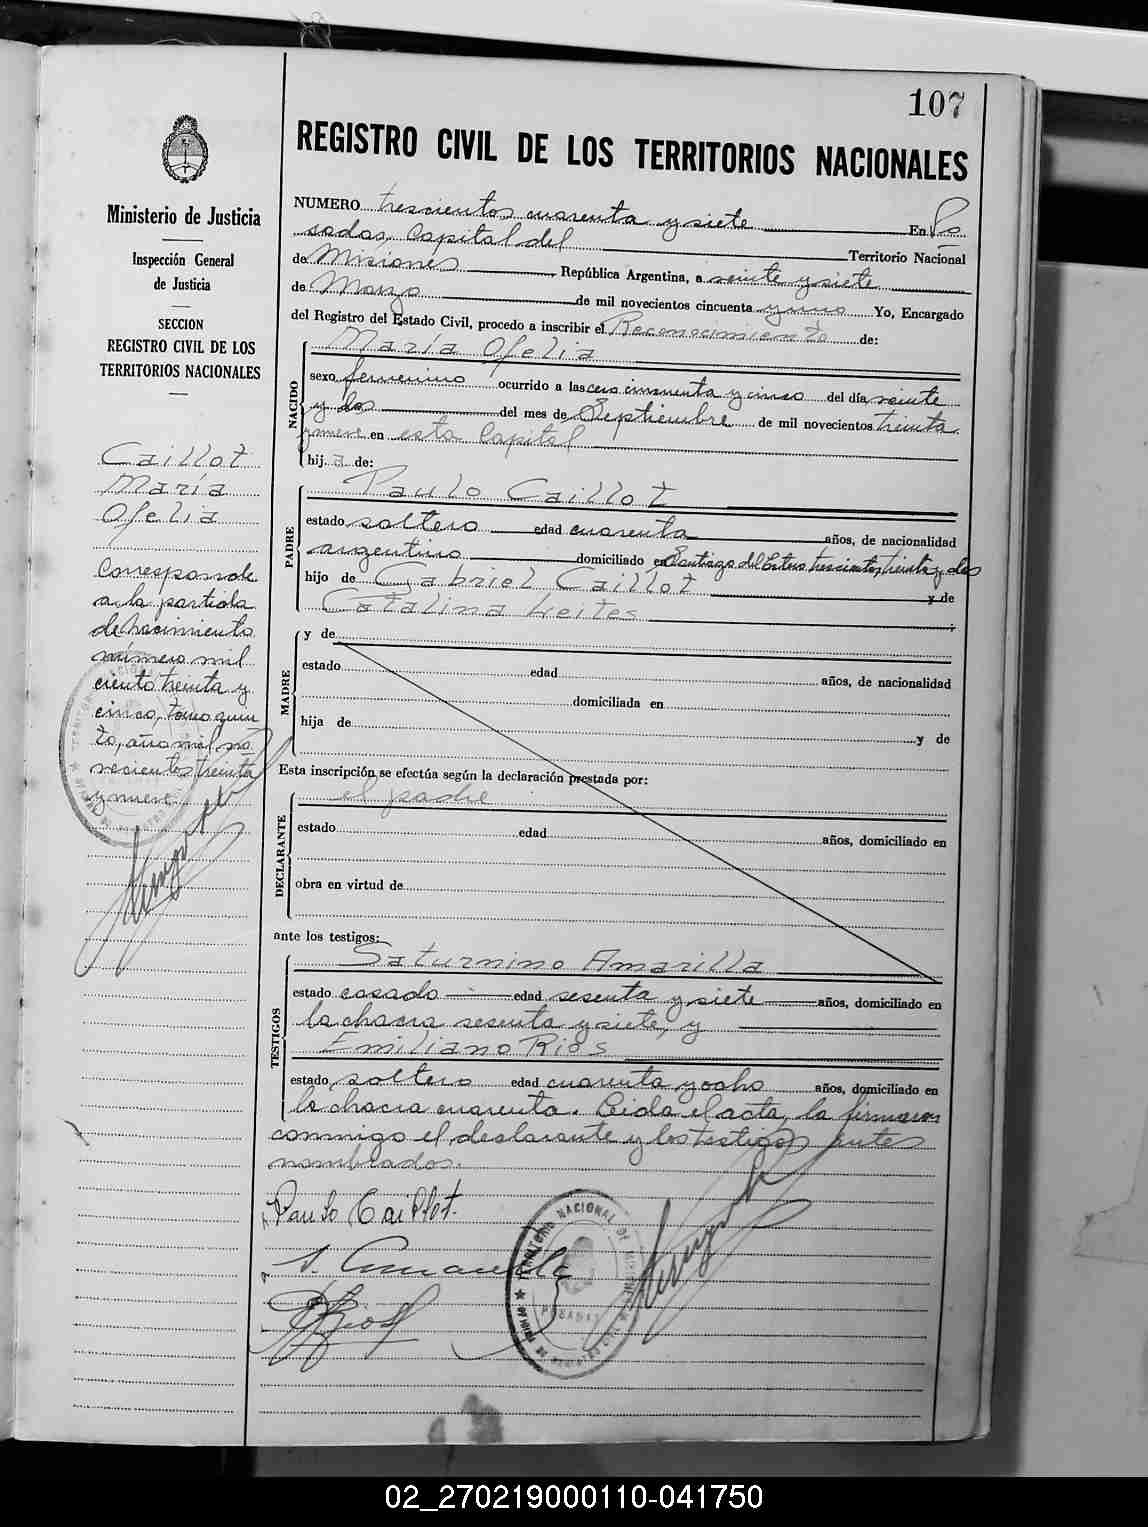 107
REGISTRO CIVIL DE LOS TERRITORIOS NACIONALES
Ministerio de Justicia
Inspección General
de Justicia
SECCION
REGISTRO CIVIL DE LOS
TERRITORIOS NACIONALES
Caillot
María
Ofelia
Corresponde
a la partida
de nacimiento
número mil
ciento treinta y
cinco, tomo quin
to, año mil no
vecientos treinta
y nueve.
NUMERO trescientos cuarenta y siete En Po
sadas, Capital del Territorio Nacional
de Misiones República Argentina, a veinte y siete
de Marzo de mil novecientos cincuenta y uno Yo, Encargado
del Registro del Estado Civil, procedo a inscribir el Reconocimiento de:
María Ofelia
NACIDO
sexo femenino ocurrido a las cero cincuenta y cinco del día veinte
y dos del mes de Septiembre de mil novecientos treinta
y nueve en esta Capital
hij a de:
Paulo Caillot
PADRE
estado soltero edad cuarenta años, de nacionalidad
argentino domiciliado en Santiago del Estero trescientos treinta y dos
hijo de Gabriel Caillot y de
Catalina Leites ;
y de
MADRE
estado edad años, de nacionalidad
domiciliada en
hija de y de
Esta inscripción se efectúa según la declaración prestada por:
el padre
DECLARANTE
estado edad años, domiciliado en
obra en virtud de
ante los testigos:
Saturnino Amarilla
TESTIGOS
estado casado edad sesenta y siete años, domiciliado en
la chacra sesenta y siete, y
Emiliano Rios
estado soltero edad cuarenta y ocho años, domiciliado en
la chacra cuarenta. Leida el acta, la firmaron
conmigo el declarante y los testigos antes
nombrados.
Paulo Caillot.
S. Amarilla
ERios
TERRITORIO NACIONAL DE MISIONES
POSADAS
02_270219000110-041750